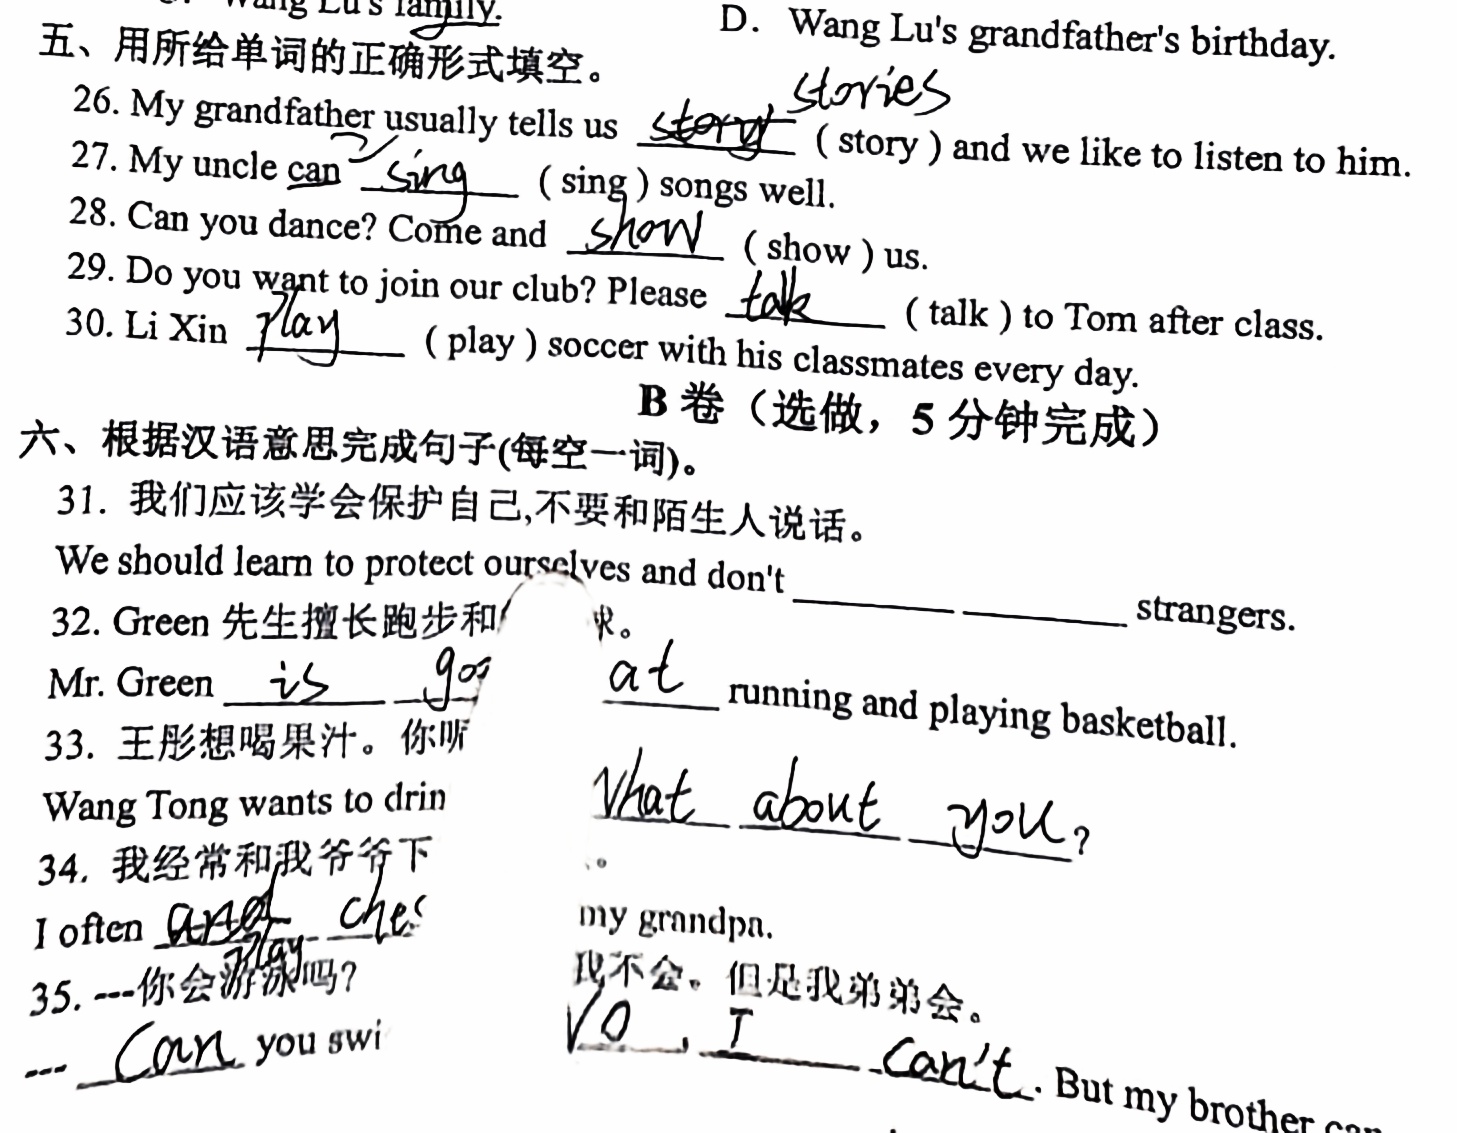 Wang Lu's family.
D. Wang Lu's grandfather's birthday.
五、用所给单词的正确形式填空。
stories
26. My grandfather usually tells us story ( story ) and we like to listen to him.
27. My uncle can sing ( sing ) songs well.
28. Can you dance? Come and show ( show ) us.
29. Do you want to join our club? Please talk ( talk ) to Tom after class.
30. Li Xin play ( play ) soccer with his classmates every day.
B 卷（选做，5 分钟完成）
六、根据汉语意思完成句子(每空一词)。
31. 我们应该学会保护自己,不要和陌生人说话。
We should learn to protect ourselves and don't ____ ____ strangers.
32. Green 先生擅长跑步和 球。
Mr. Green is at running and playing basketball.
33. 王彤想喝果汁。你
Wang Tong wants to What about you?
34. 我经常和我爷爷下 。
I often and my grandpa.
play
35. ---你会游泳吗? 我不会。但是我弟弟会。
--- Can you No, I can't. But my brother